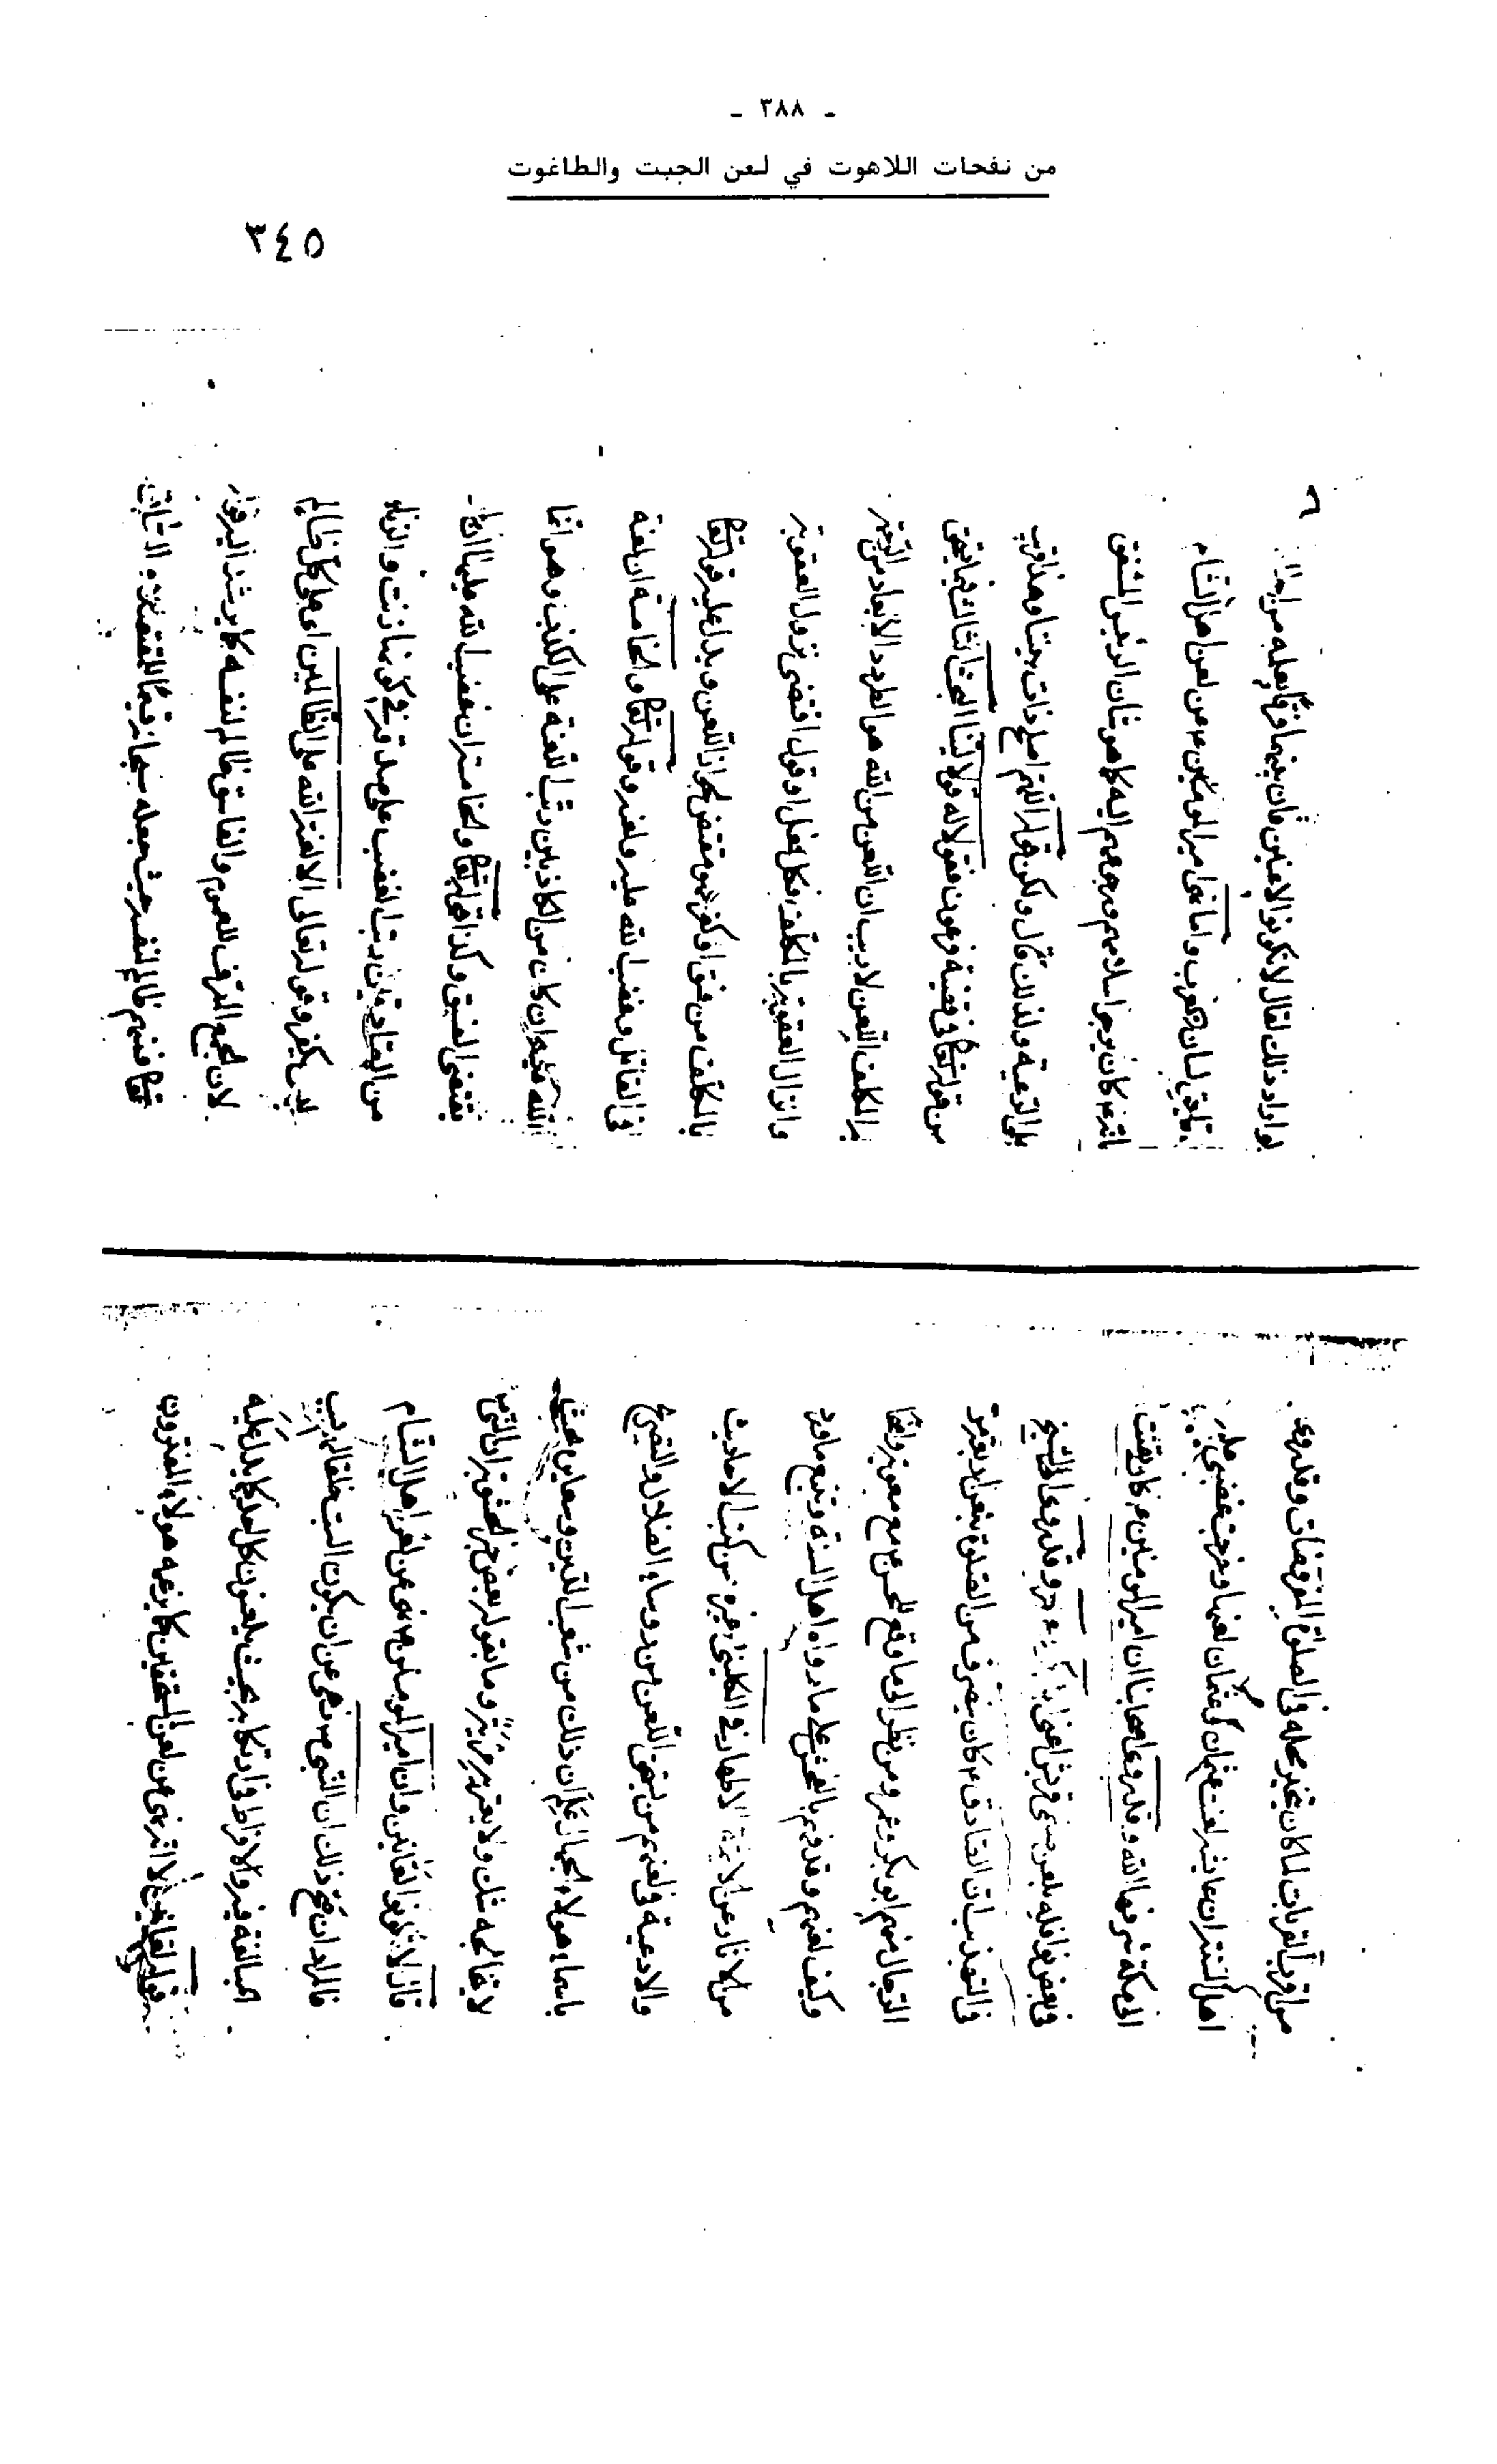 - ٣٨٨ -
من نفحات اللاهوت في لعن الجبت والطاغوت
٣٤٥
من اقرب القربات لما كان يتخير محله في الصلوات المفروضات وقد روى
اهل السنن ان عايشه لعنت عثمان ولعنها وخرجت غضبى عليه
الى مكة شرفها الله وقد روى اصحابنا ان امير المومنين ع كان يقنت
في بعض نوافله بلعن صنمى قريش اعنى وعمر وقد روى الشيخ
في التهذيب ان الصادق ع كان ينصرف من الصلوة بلعن اربعة
الرجال منهم ابو بكر وعمر ومن نظر الى ما وقع للحسن ع مع معوية
وكيف لعنهم وقدفهم بالفحش على ما رواه اهل السنة وتتبع ماورد
من الاثار عن الائمة الاطهار في الكلينى وغيره من كتب الاحاديث
والادعية في لعنهم من يستحق اللعن من روساء الضلال والتصريح
باسماء هولاء الجهال علم ان ذلك من شعب الدين وشعاير بحيث
لا يتخالجه شك ولا يعتريه مرية وما يقوله بعض الحشوية ان النبى
قال لا تكونوا لعانين وان امير المومنين ع نهى عن لعن اهل الشام
فالمراد ان صح ذلك ان النبى ص نهى عن ان يكون السب خلقا لهم بسبب
المبالغة فيه والافراط في ارتكابه بحيث يلعنون كل احد كما يدل عليه
قوله لعانين لا انه نهى عن لعن المستحقين كما يزعمه هولاء المغترون
٦
لو اراد ذلك لقال لا تكونوا لاعنين فان بينهما فرقا يعلمه من
لسان العرب واما نهى امير المومنين ع عن لعن اهل الشام
فانه ع كان يرجو اسلامهم ورجوعهم اليه كما هو شان الرئيس المشفق
على الرعية ولذلك قال ولكن قولوا اللهم اصلح ذات بيننا وهذا قريب
من قوله تعالى في قصة فرعون فقولا له قولا لينا البحث الثالث فيما يستحق
به المكلف اللعن لا ريب ان اللعن من الله هو الطرد والابعاد من الرحمة
وانزال العقوبة بالمكلف وكل فعل او قول اقتضى نزول العقوبة
بالمكلف من فسق او كفر فهو مقتض لجواز اللعن ويدل عليه قوله تعالى
في القاتل وغضب الله عليه ولعنه وقوله تعالى والخامسة ان لعنة
الله عليه ان كان من الكاذبين رتب اللعنة على الكذب وهو انما
يقتضى الفسق وكذا قوله تعالى والخامسة ان غضب الله عليها ان كان
من الصادقين رتب الغضب على صدقه في كونها زنت والزنا
ليس بكفر وقوله تعالى الا لعنة الله على الظالمين اى على كل ظالم
لان الجمع المعرف للعموم والفاسق ظالم لنفسه كما يرشد اليه قوله
تعالى فمنهم ظالم لنفسه حيث جعله سبحانه قسيما للمقتصد والسابق